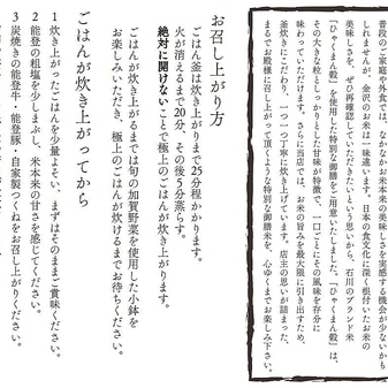 普段のご家庭や外食では、なかなかお米本来の美味しさを実感する機会が少ないかも
しれませんが、金沢のお米は一味違います。日本の食文化に深く根付いたお米の
美味しさを、ぜひ再確認していただきたいという思いから、石川のブランド米
「ひゃくまん穀」を使用した特別な御膳をご用意いたしました。「ひゃくまん穀」は、
その大きな粒としっかりとした甘味が特徴で、一口ごとにその風味を存分に
味わっていただけます。さらに当店では、お米の旨みを最大限に引き出すため、
釜炊きにこだわり、一つ一つ丁寧に炊き上げています。店主の思いが詰まった、
まるでお殿様に召し上がって頂くような特別な御膳米を、心ゆくまでお楽しみ下さい。
お召し上がり方
ごはん釜は炊き上がりまで25分程かかります。
火が消えるまで20分、その後5分蒸らす。
絶対に開けないことで極上のごはんが炊き上がります。
ごはんが炊き上がるまでは旬の加賀野菜を使用した小鉢を
お楽しみいただき、極上のごはんが炊けるまでお待ちください。
ごはんが炊き上がってから
1 炊き上がったごはんを少量よそい、まずはそのままご賞味ください。
2 能登の粗塩を少しまぶし、米本来の甘さを感じてください。
3 炭焼きの能登牛・能登豚・自家製つくねをお召し上がりください。